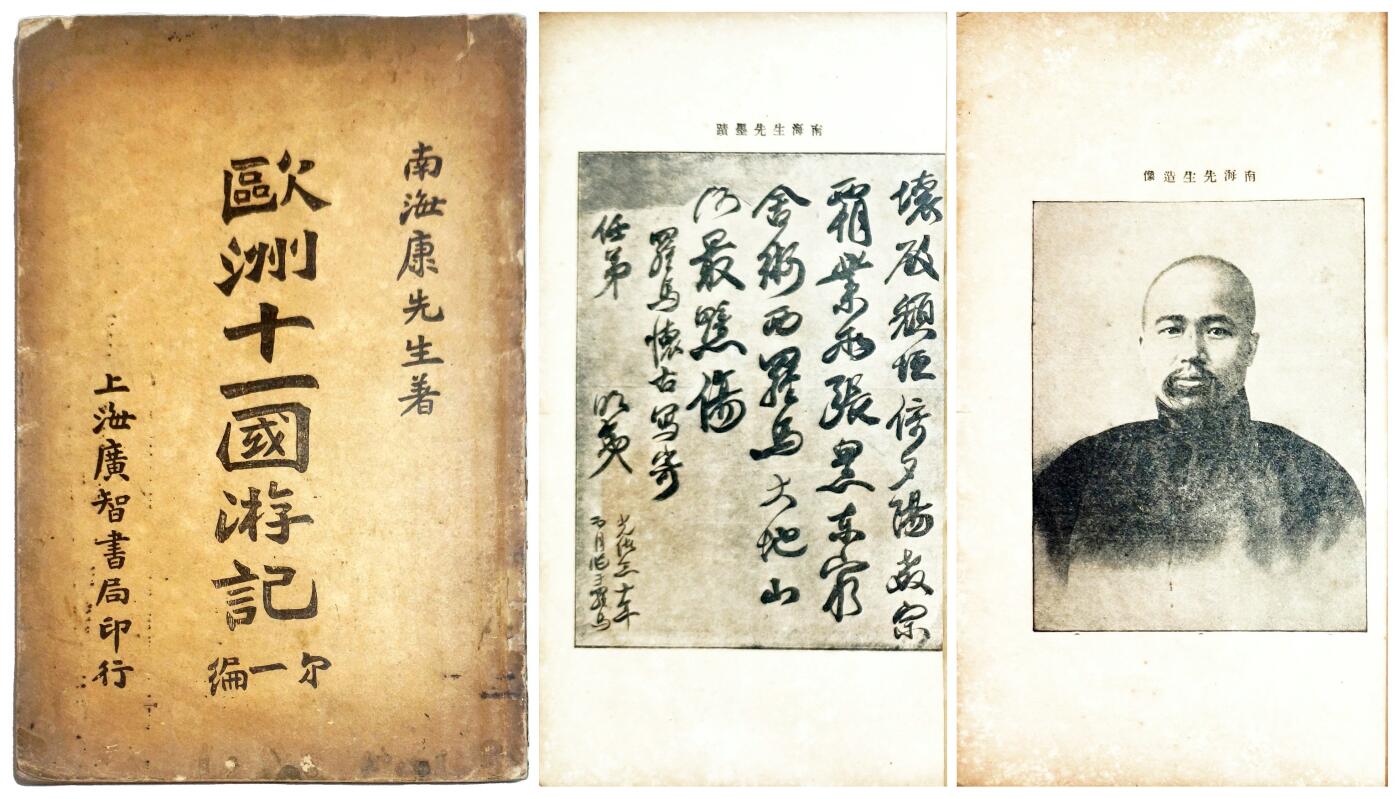 南海康先生著
歐洲十一國游記
第一編
上海廣智書局印行
南海先生墨蹟
壞殿頹垣倚夕陽教宗
霸業亦張皇東窮
舍衛西羅馬大地山
河最慘傷
羅馬懷古寫寄
任弟
明夷
光緒三十年
五月作于羅馬
南海先生造像